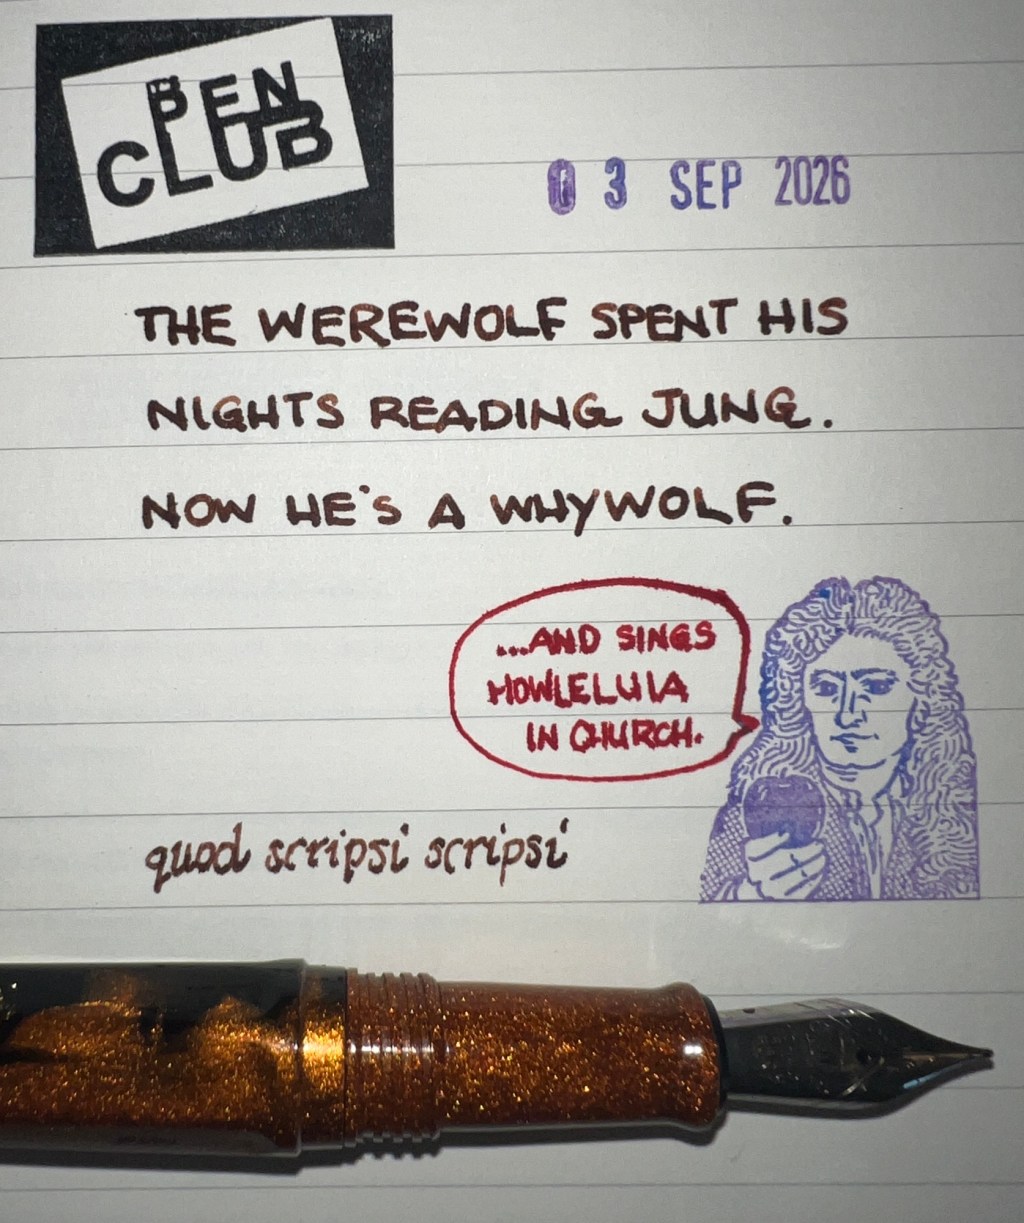 PEN
CLUB
03 SEP 2026
THE WEREWOLF SPENT HIS
NIGHTS READING JUNG.
NOW HE'S A WHYWOLF.
...AND SINGS
HOWLELUIA
IN CHURCH.
quod scripsi scripsi